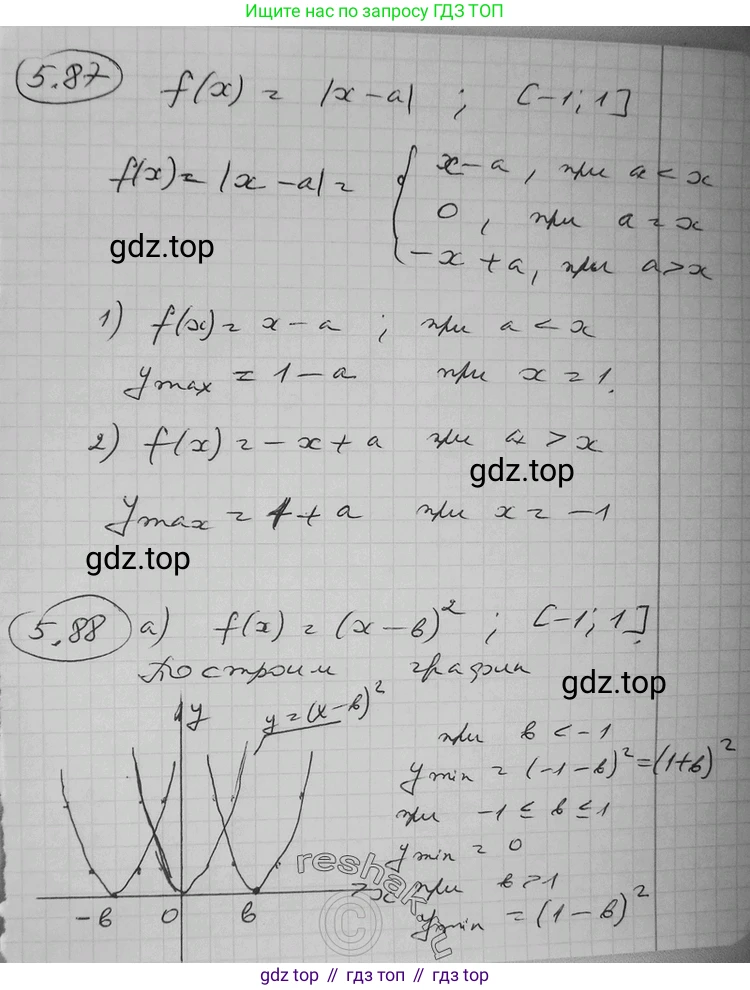 Ищите нас по запросу ГДЗ ТОП
5.87 f(x) = |x-a| ; [-1; 1]
f(x) = |x-a| = { x-a, при a < x
0, при a = x
gdz.top
-x+a, при a > x
1) f(x) = x-a ; при a < x
y max = 1-a при x = 1.
2) f(x) = -x+a при a > x
gdz.top
y max = 1+a при x = -1
gdz.top
5.88 a) f(x) = (x-в)² ; [-1; 1]
Построим график
gdz.top
y y=(x-в)²
при в < -1
y min = (-1-в)² = (1+в)²
при -1 ≤ в ≤ 1
y min = 0
при в > 1
y min = (1-в)²
-в 0 в x
reshak.ru
©
gdz top // гдз топ // gdz top